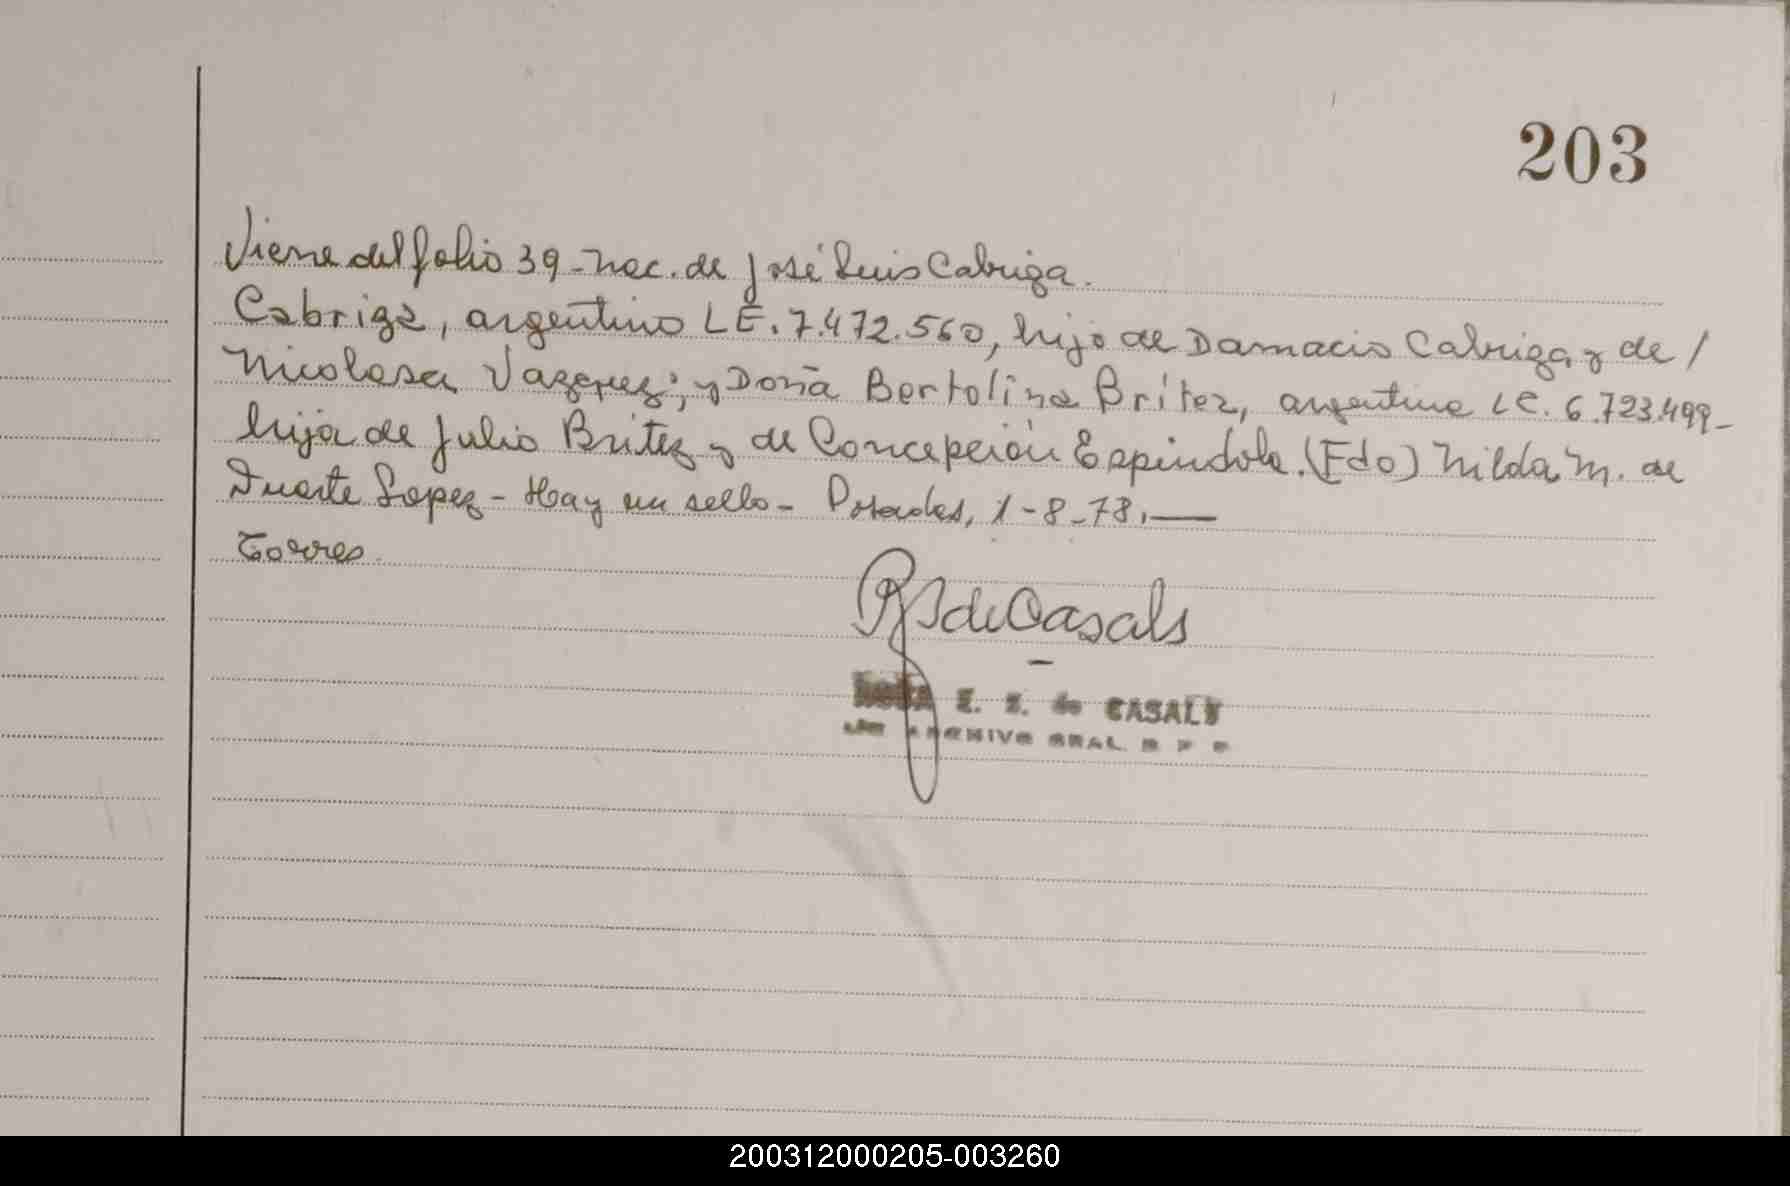 203
Viene del folio 39 - Nac. de José Luis Cabriza.
Cabriza, argentino L.E. 7.472.560, hijo de Damacio Cabriza y de /
Nicolasa Vazquez; y Doña Bertolina Britez, argentina LC. 6.723.499 -
hija de Julio Britez y de Concepción Espíndola. (Fdo) Nilda M. de
Duarte Lopez - Hay un sello - Posadas, 1-8-78. —
Torres.
de Casals
E. de CASALS
ARCHIVO GRAL. R P P
200312000205-003260